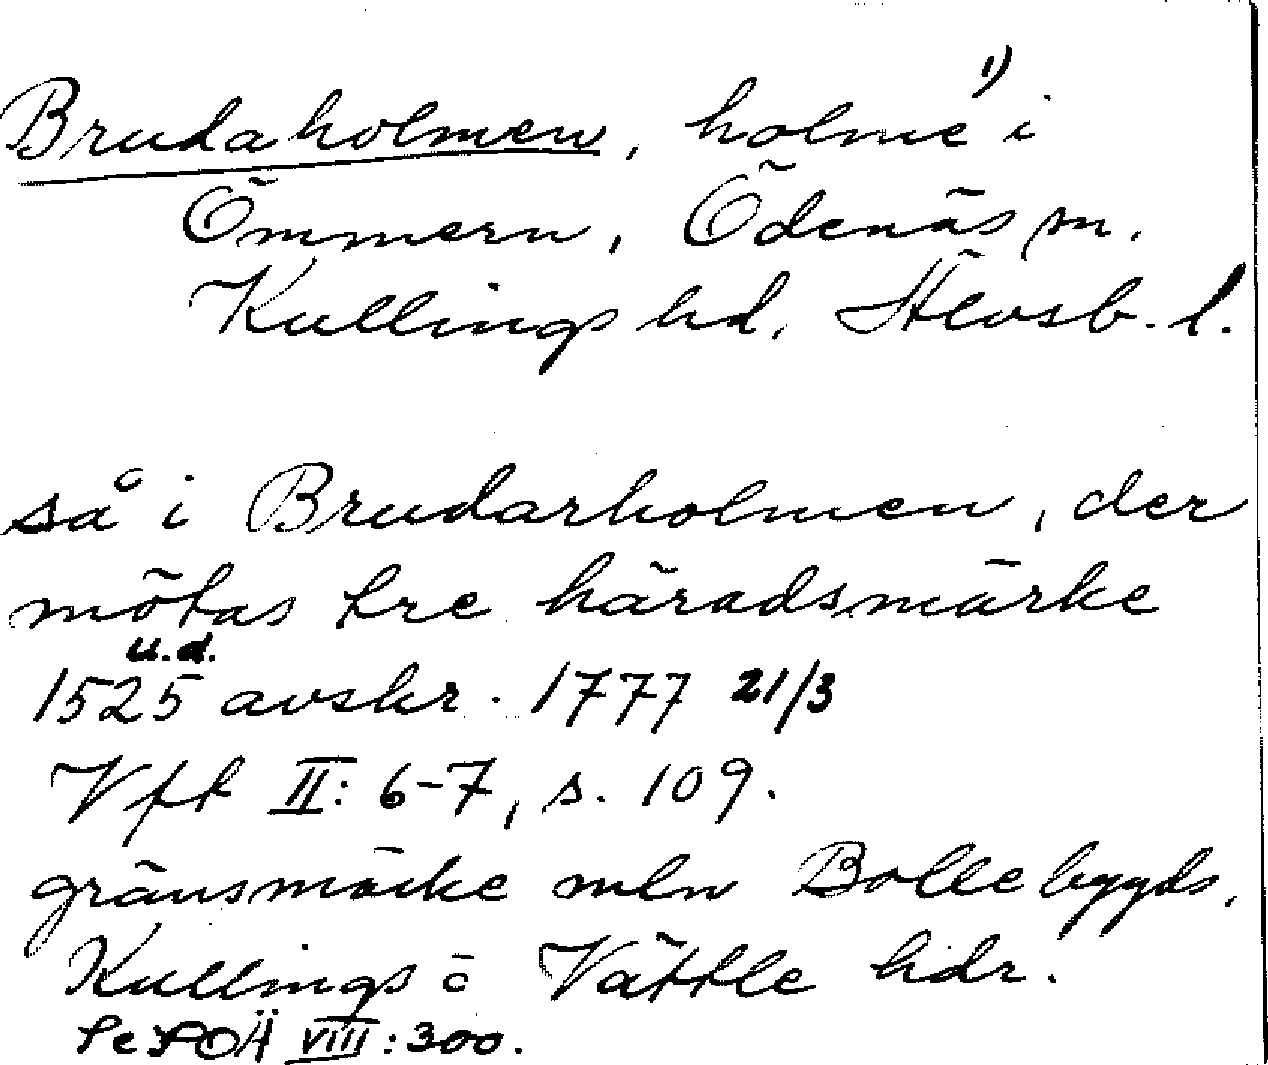 Brudaholmen, holme 1) i
Ömmern, Ödenäs sn.
Kullings hd, Älvsb. l.
så i Brudarholmen, der
mötas tre häradsmärke
1525 u.d. avskr. 1777 21/3
Vfft II: 6-7, s. 109.
gränsmärke mln Bollebygds,
Kullings o Vättle hdr.
Se SOÄ VIII: 300.